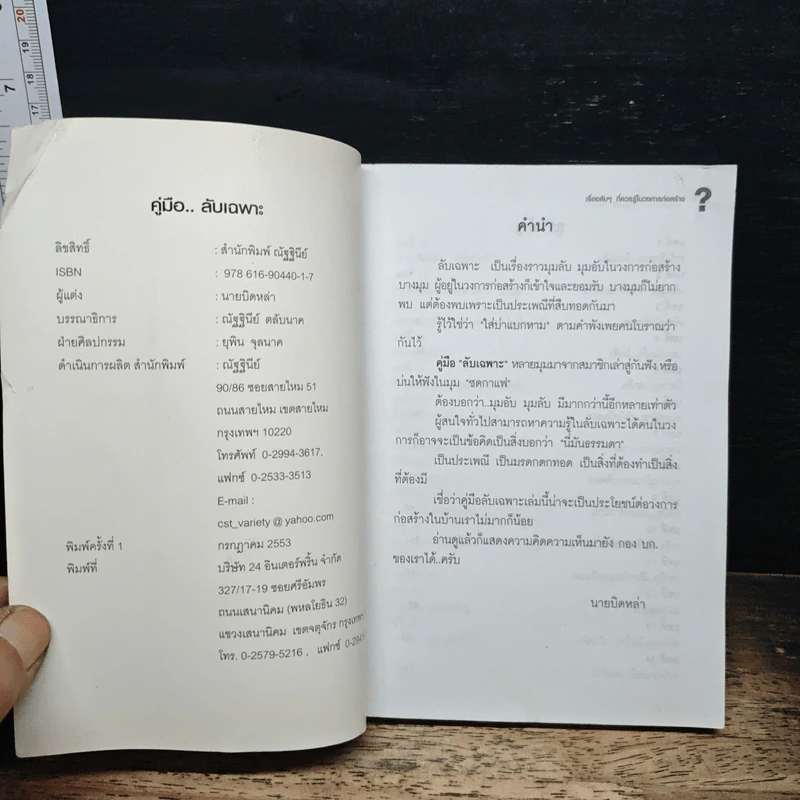 คู่มือ.. ลับเฉพาะ
ลิขสิทธิ์ : สำนักพิมพ์ ณัฐฐินีย์
ISBN : 978 616-90440-1-7
ผู้แต่ง : นายบิดหล่า
บรรณาธิการ : ณัฐฐินีย์ ตลับนาค
ฝ่ายศิลปกรรม : ยุพิน จุลนาค
ดำเนินการผลิต สำนักพิมพ์ : ณัฐฐินีย์
90/86 ซอยสายไหม 51
ถนนสายไหม เขตสายไหม
กรุงเทพฯ 10220
โทรศัพท์ 0-2994-3617,
แฟกซ์ 0-2533-3513
E-mail :
cst_variety @ yahoo.com
พิมพ์ครั้งที่ 1 กรกฎาคม 2553
พิมพ์ที่ บริษัท 24 อินเตอร์พริ้น จำกัด
327/17-19 ซอยศรีอัมพร
ถนนเสนานิคม (พหลโยธิน 32)
แขวงเสนานิคม เขตจตุจักร กรุงเทพฯ
โทร. 0-2579-5216 , แฟกซ์ 0-294
เรื่องลับๆ ที่ควรรู้ในวงการก่อสร้าง ?
คำนำ
ลับเฉพาะ เป็นเรื่องราวมุมลับ มุมอับในวงการก่อสร้าง
บางมุม ผู้อยู่ในวงการก่อสร้างก็เข้าใจและยอมรับ บางมุมก็ไม่ยาก
พบ แต่ต้องพบเพราะเป็นประเพณีที่สืบทอดกันมา
รู้ไว้ใช่ว่า "ใส่บ่าแบกหาม" ตามคำพังเพยคนโบราณว่า
กันไว้
คู่มือ "ลับเฉพาะ" หลายมุมมาจากสมาชิกเล่าสู่กันฟัง หรือ
บ่นให้ฟังในมุม "ซดกาแฟ"
ต้องบอกว่า..มุมอับ มุมลับ มีมากกว่านี้อีกหลายเท่าตัว
ผู้สนใจทั่วไปสามารถหาความรู้ในลับเฉพาะได้คนในวง
การก็อาจจะเป็นข้อคิดเป็นสิ่งบอกว่า "นี่มันธรรมดา"
เป็นประเพณี เป็นมรดกตกทอด เป็นสิ่งที่ต้องทำเป็นสิ่ง
ที่ต้องมี
เชื่อว่าคู่มือลับเฉพาะเล่มนี้น่าจะเป็นประโยชน์ต่อวงการ
ก่อสร้างในบ้านเราไม่มากก็น้อย
อ่านดูแล้วก็แสดงความคิดความเห็นมายัง กอง บก.
ของเราได้..ครับ
นายบิดหล่า
20
19
18
17
7